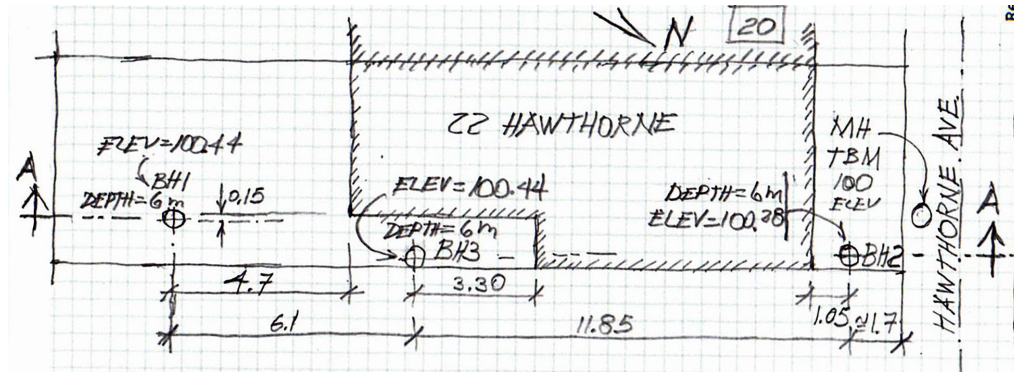 N
20
22 HAWTHORNE
ELEV=100.44
BH1
DEPTH=6m
0.15
A
ELEV=100.44
DEPTH=6m
BH3
DEPTH=6m
ELEV=100.28
MH
TBM
100
ELEV
BH2
HAWTHORNE AVE.
A
4.7
3.30
6.1
11.85
1.05
≈1.7